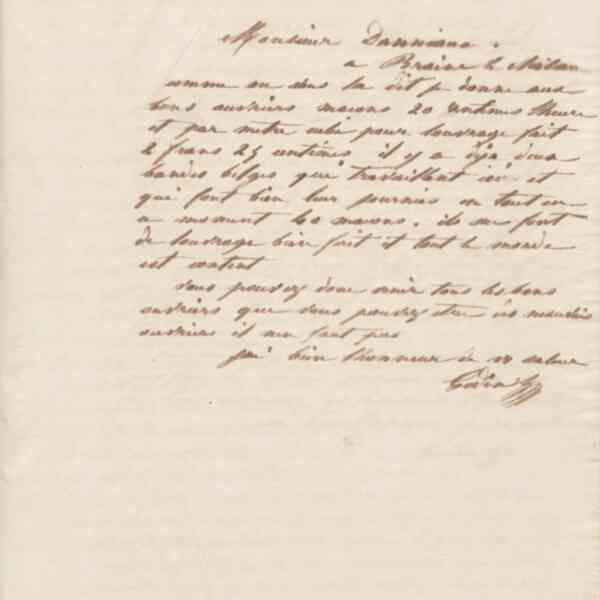 Monsieur Danniaux.
a Braine le château
comme on vous la dit je donne aux
bons ouvriers maçons 20 centimes l'heure
et par metre cube pour louvrage fait
2 frans 25 centimes il y a deja deux
bandes belges qui travaillent ici et
qui font bien leur journées en tout en
a moment 40 maçons. ils me font
de louvrage bien fait et tout le monde
est content
vous pouvez donc venir tous les bons
ouvriers que vous pouvez être les mauvais
ouvriers il nen faut pas
jai bien lhonneur de vs saluer
Godin